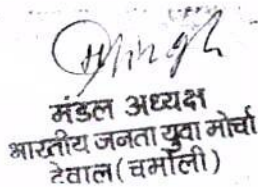 मंडल अध्यक्ष
भारतीय जनता युवा मोर्चा
देवाल (चमोली)